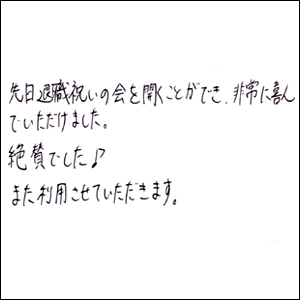 先日退職祝いの会を開くことができ、非常に喜ん
でいただけました。
絶賛でした♪
また利用させていただきます。